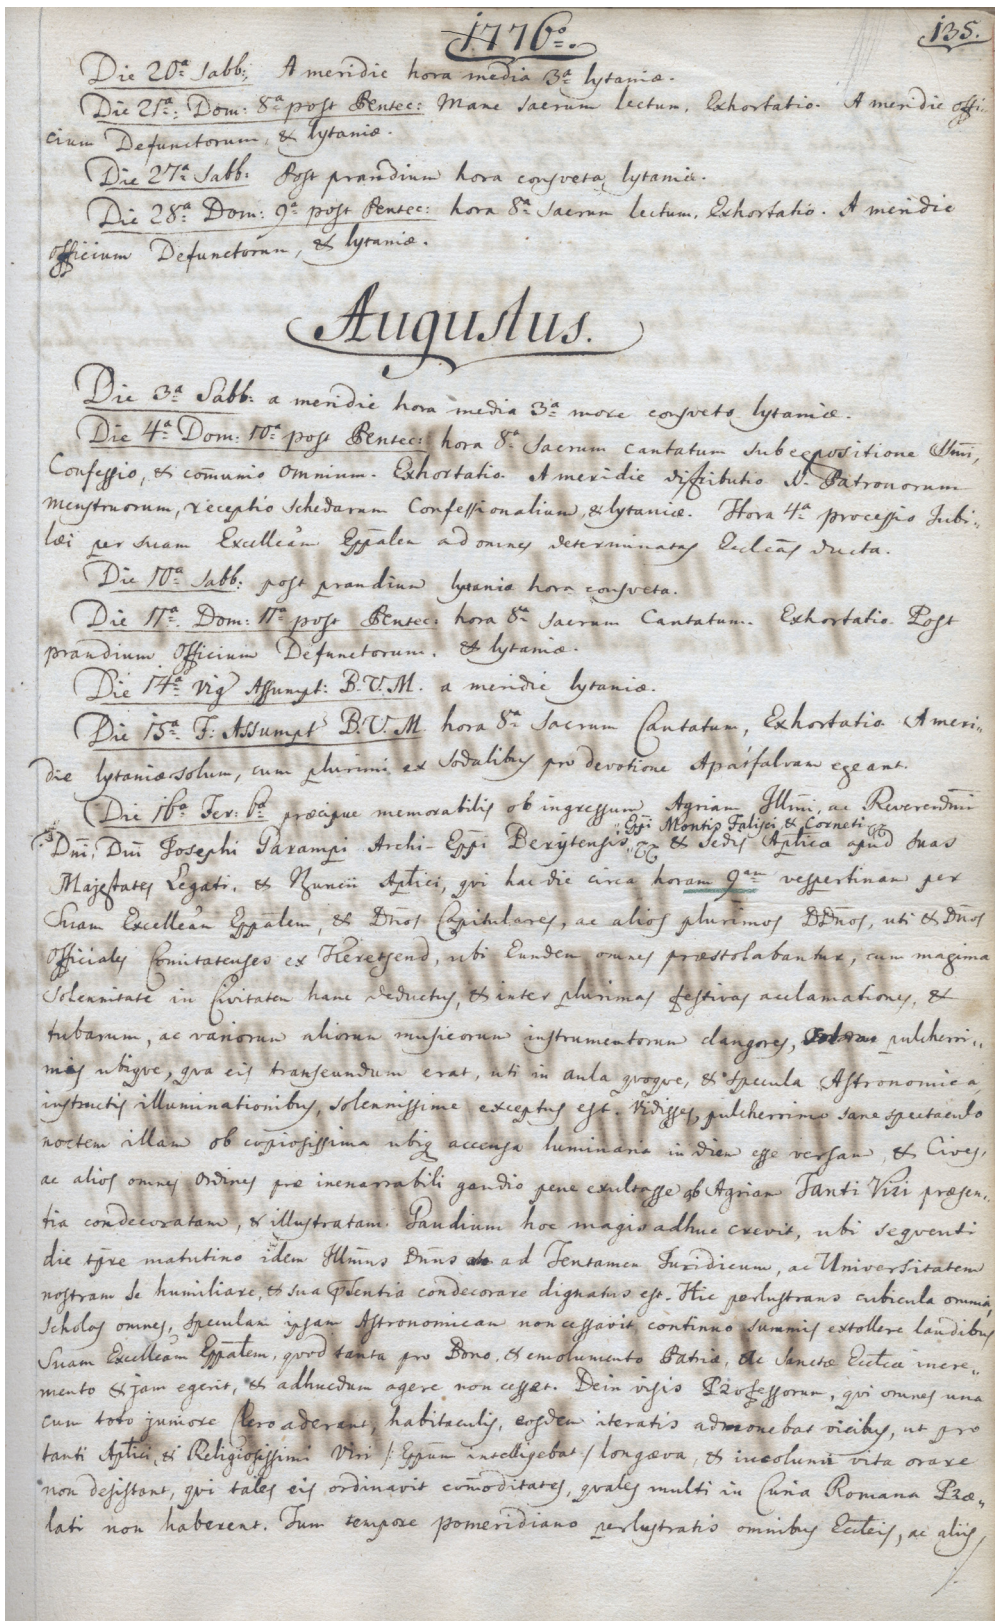 1776º.
135.
Die 20ª Sabb: A meridie hora media 3ª lytaniæ.
Die 21ª: Dom: 8ª post Pentec: Mane Sacrum lectum. Exhortatio. A meridie offi-
cium Defunctorum, & lytaniæ.
Die 27ª Sabb. Post prandium hora consveta lytaniæ.
Die 28ª Dom: 9ª post Pentec: hora 8ª Sacrum lectum. Exhortatio. A meridie
officium Defunctorum, & lytaniæ.
Augustus.
Die 3ª Sabb: a meridie hora media 3ª more consveto lytaniæ.
Die 4ª Dom: 10ª post Pentec: hora 8ª Sacrum cantatum sub expositione SSmi,
Confessio, & com̄unio omnium. Exhortatio. A meridie distributio SS. Patronorum
menstruorum, receptio schedarum Confessionalium, & lytaniæ. Hora 4ª processio Jubi-
læi per suam Excellēam Eppālem ad omnes determinatas Eccleās ducta.
Die 10ª Sabb: post prandium lytaniæ hora consveta.
Die 11ª Dom: 11ª post Pentec: hora 8ª Sacrum Cantatum. Exhortatio. Post
prandium officium Defunctorum, & lytaniæ.
Die 14ª Vig Assumpt: B.V.M. a meridie lytaniæ.
Die 15ª. F: Assumpt B.V.M. hora 8ª Sacrum Cantatum, Exhortatio A meri-
die lytaniæ solum, cum plurimi ex Sodalibus pro devotione Apátfalvam egeant.
Die 16ª Fer: 6ª præcipue memorabilis ob ingressum Agriam Illm̄i, ac Reverendm̄i
Eppi Montis Falisci, & Corneti
Dn̄i, Dn̄i Josephi Garampi Archi-Eppi Berytensis & Sedis Aptlica apud suas
Majestates Legati, & Nuncii Aptlici, qvi hac die circa horam 9am vespertinam per
Suam Excellēam Eppālem, & Dn̄os Capitulares, ac alios plurimos DDn̄os, uti & Dn̄os
Officiales Comitatenses ex Keretsend, ubi Eundem omnes præstolabantur, cum magima
Solennitate in Civitatem hanc deductus, & inter plurimas festivas acclamationes, &
tubarum, ac variorum aliorum musicorum instrumentorum clangores, pulcherri-
mis ubiqve, qva eis transeundum erat, uti in aula qvoqve, & specula Astronomica
instructis illuminationibus, solennissime exceptus est. Vidisses pulcherrimo sane spectaculo
noctem illam ob copiosissima ubiq accensa luminaria in diem esse versam, & Cives,
ac alios omnes ordines præ inenarrabili gaudio pene exultasse ob Agriam Tanti Viri præsen-
tia condecoratam, & illustratam. Gaudium hoc magis adhuc crevit, ubi seqventi
die tpre matutino idem Illm̄us Dn̄us ad Tentamen Juridicum, ac Universitatem
nostram se humiliare, & sua pSentia condecorare dignatus est. Hic perlustrans cubicula omnia,
Scholas omnes, speculam ipsam Astronomicam non cessavit continuo summis extollere laudibus
Suam Excellēam Eppālem, qvod tanta pro Bono, & emolumento Patriæ, ac Sanctæ Eccleæ incre-
mento & jam egerit, & adhucdum agere non cesset. Dein visis Professorum, qvi omnes una
cum toto juniore Clero aderant, habitaculis, eosdem iteratis admonebat vicibus, ut pro
tanti Aptlici, & Religiosissimi Viri /: Eppum intelligebat / longæva, & incolumi vita orare
non desistant, qvi tales eis ordinavit com̄oditates, qvales multi in Curia Romana Præ-
lati non haberent. Tum tempore pomeridiano perlustratis omnibus Eccleis, ac aliis